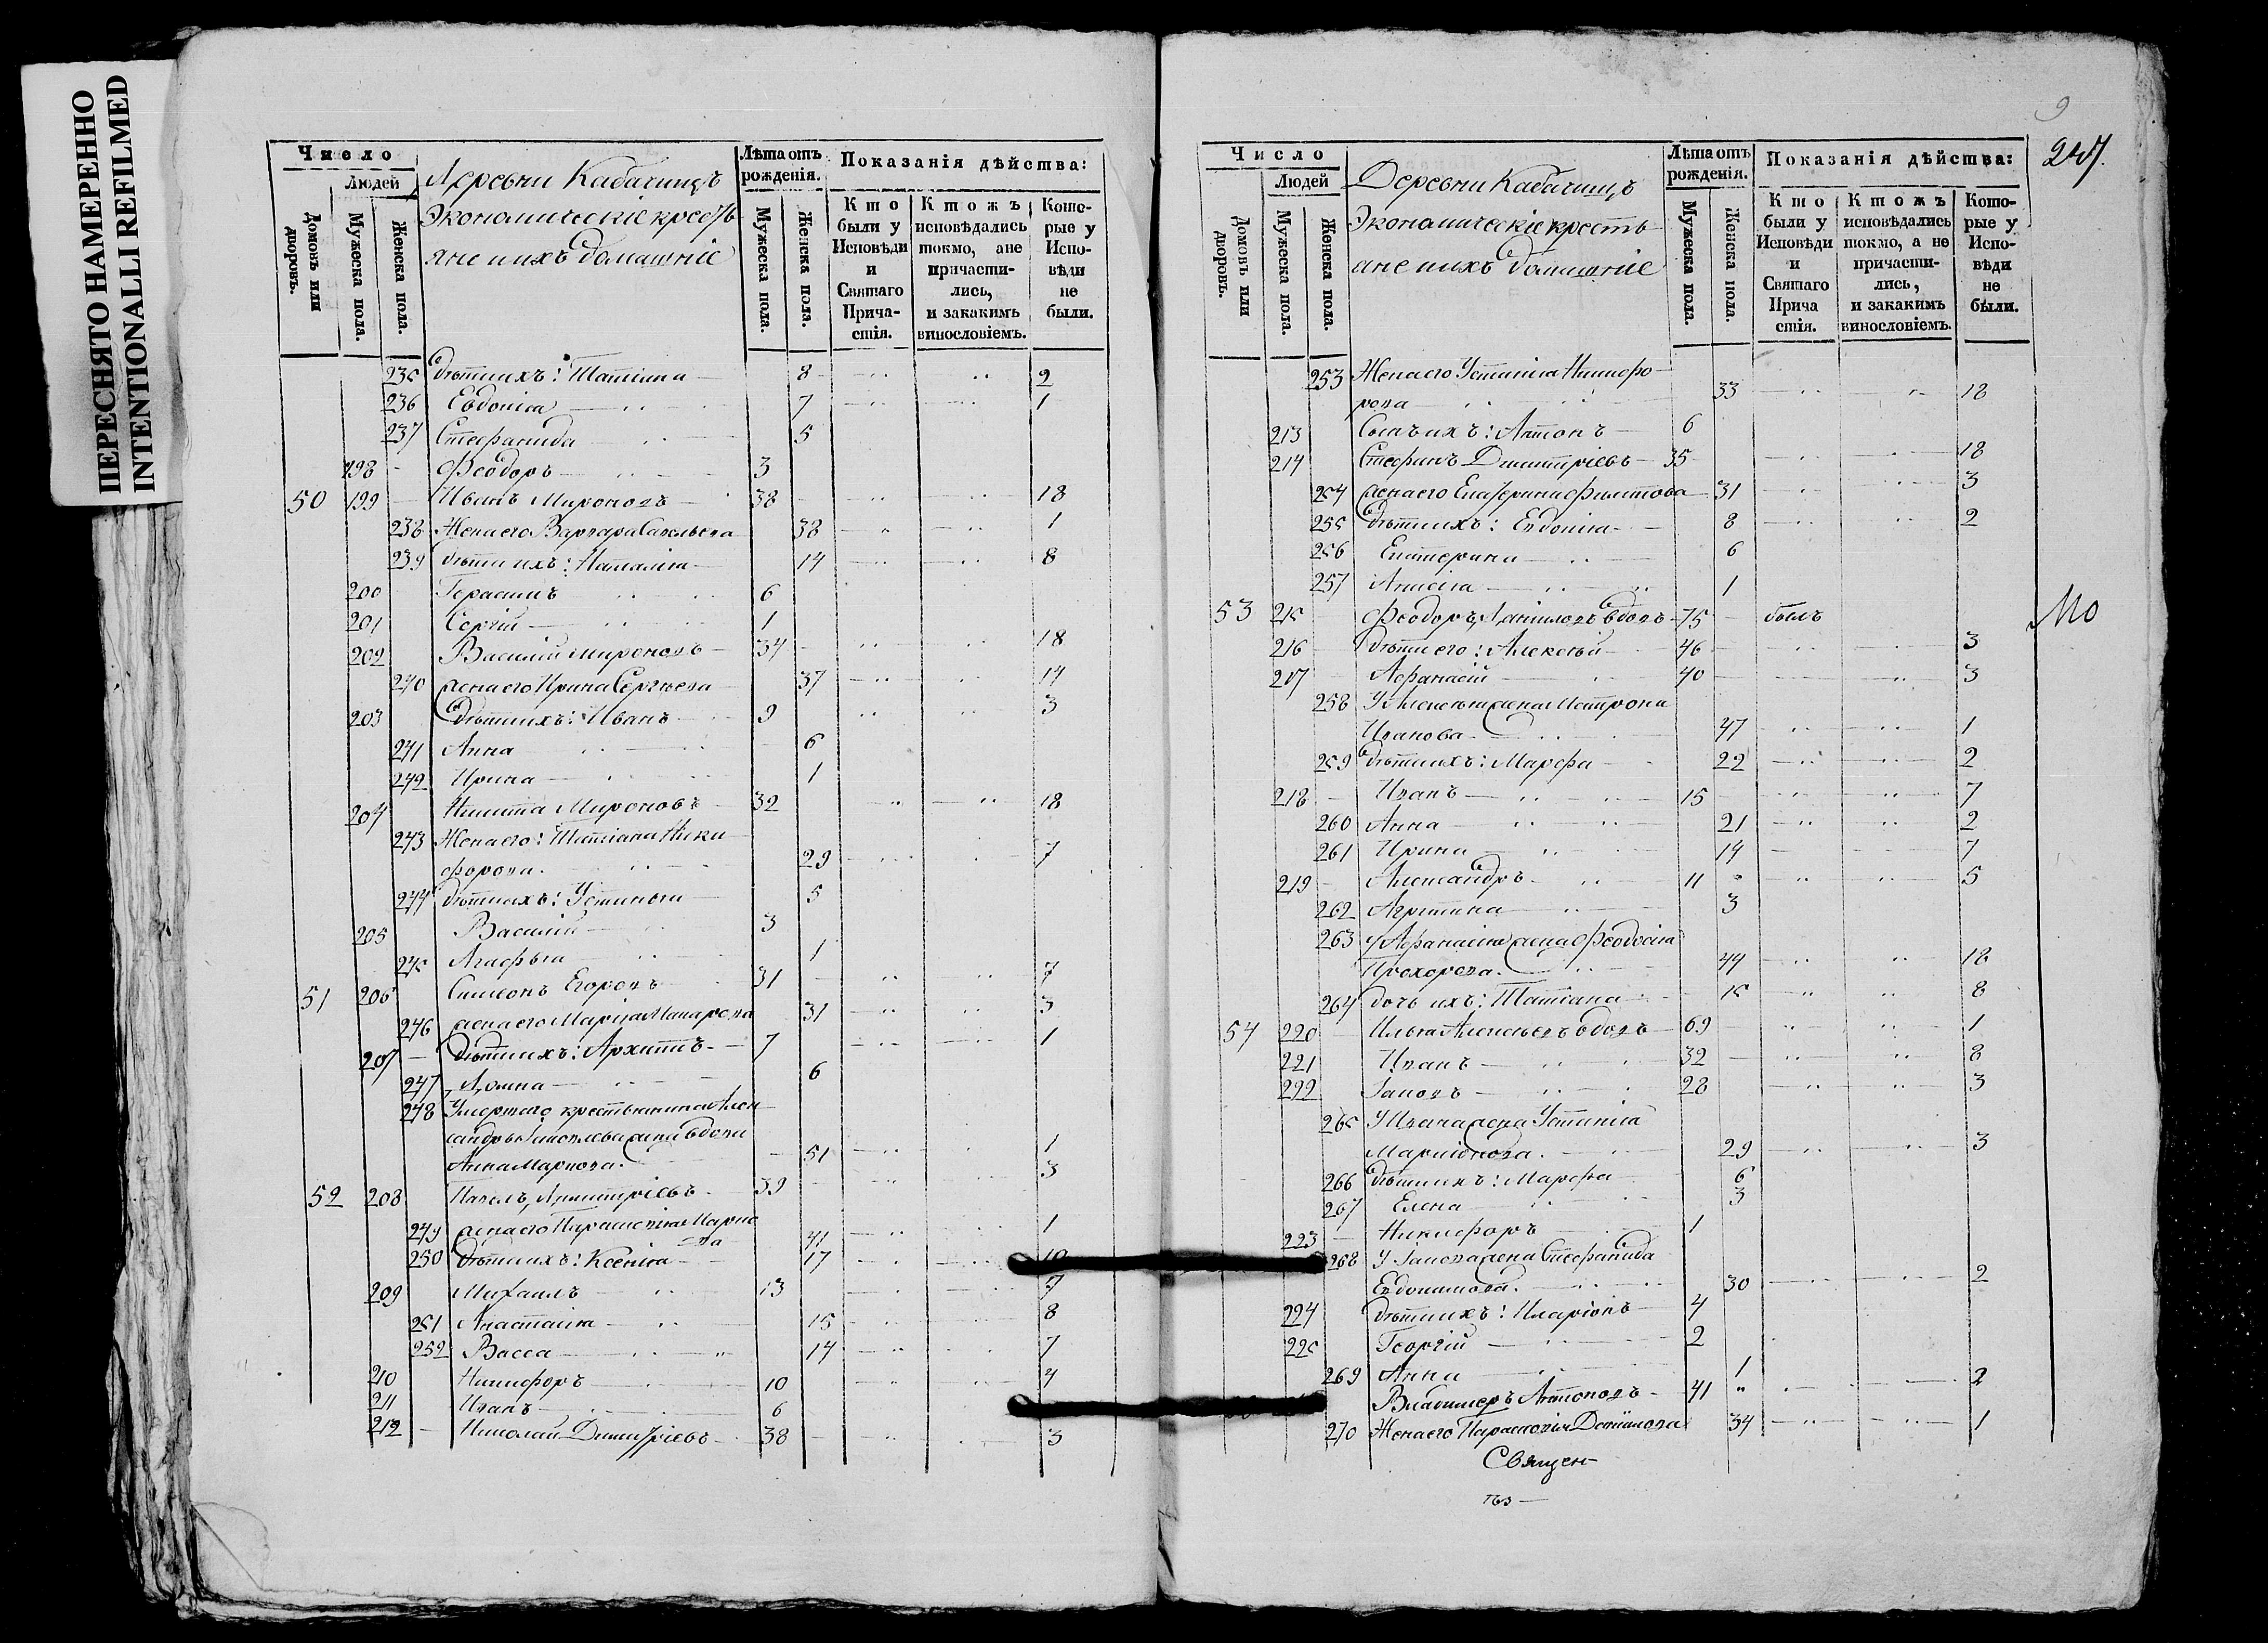 ПЕРЕСНЯТО НАМЕРЕННО
INTENTIONALLI REFILMED
Число
Людей
Домовъ или дворовъ.
Мужеска пола.
Женска пола.
Деревни Кабачищъ
Экономическіе кресть-
яне и ихъ домашніе
Лѣта отъ рожденія.
Мужеска пола.
Женска пола.
Показанія дѣйства:
Кто были у Исповѣди и Святаго Прича-стія.
Ктожъ исповѣдались токмо, ане причасти-лись, и закакимъ винословіемъ.
Кото-рые у Испо-вѣди не были.
235 дѣти ихъ: Татіана 8 2
236 Евдокіа 7 1
237 Стефанида 5
198 Феодоръ 3
50 199 Иванъ Мироновъ 38 18
238 Жена его Варвара Савельева 38 1
239 дѣти ихъ: Наталіа 14 8
200 Герасимъ 6
201 Сергій 1
202 Василій Мироновъ 34 18
240 жена его Ирина Сергѣева 37 14
203 дѣти ихъ: Иванъ 9 3
241 Анна 6
242 Ирина 1
204 Никита Мироновъ 32 18
243 Жена его: Татіана Ники
форова. 29 7
244 дѣти ихъ: Устинья 5
205 Василій 3
245 Агафья 1
51 206 Симеонъ Егоровъ 31 7
246 жена его Маріа Макарова 31 3
207 дѣти ихъ: Архипъ 7 1
247 Домна 6
248 Умершаго крестьянина Алек
сандра Іаковлева жена вдова
Анна Маркова. 51 1
52 208 Павелъ Димитріевъ 39 3
249 жена его Параскевіа Марко
ва 41 1
250 дѣти ихъ: Ксеніа 17 10
209 Михаилъ 13 7
251 Анастасіа 15 8
252 Васса 14 7
210 Никифоръ 10 4
211 Иванъ 6
212 Николай Димитріевъ 38 3
9
217.
Число
Людей
Домовъ или дворовъ.
Мужеска пола.
Женска пола.
Деревни Кабачищъ
Экономическіе кресть-
яне и ихъ домашніе
Лѣта отъ рожденія.
Мужеска пола.
Женска пола.
Показанія дѣйства:
Кто были у Исповѣди и Святаго Прича стія.
Ктожъ исповѣдались токмо, а не причасти-лись, и закакимъ винословіемъ.
Кото-рые у Испо-вѣди не были.
253 Жена его Устиніа Никифо-
рова 33 18
213 Сынъ ихъ: Антонъ 6
214 Стефанъ Димитріевъ 35 18
254 жена его Екатерина Филиппова 31 3
255 дѣти ихъ: Евдокіа 8 2
256 Екатерина 6
257 Анисіа 1
53 215 Феодоръ Даниловъ вдовъ 75 былъ
216 дѣти его: Алексѣй 46 3
217 Афанасій 40 3
258 У Алексѣя жена Матрона
Иванова 47 1
259 дѣти ихъ: Марфа 22 2
218 Иванъ 15 7
260 Анна 21 2
261 Ирина 14 7
219 Александръ 11 5
262 Агрипина 3
263 у Афанасіа жена Феодосіа
Прохорова. 44 18
264 дочь ихъ: Татіана 15 8
54 220 Илья Алексѣевъ вдовъ 69 1
221 Иванъ 32 8
222 Іаковъ 28 3
265 У Ивана жена Устиніа
Маркіонова. 29 3
266 дѣти ихъ: Марфа 6
267 Елена 3
223 Никифоръ 1
268 У Іакова жена Стефанида
Евдокимова. 30 2
224 дѣти ихъ: Иларіонъ 4
225 Георгій 2
269 Анна 1
Владимеръ Антоновъ 41 2
270 Жена его Параскевіа Данилова 34 1
Священ-